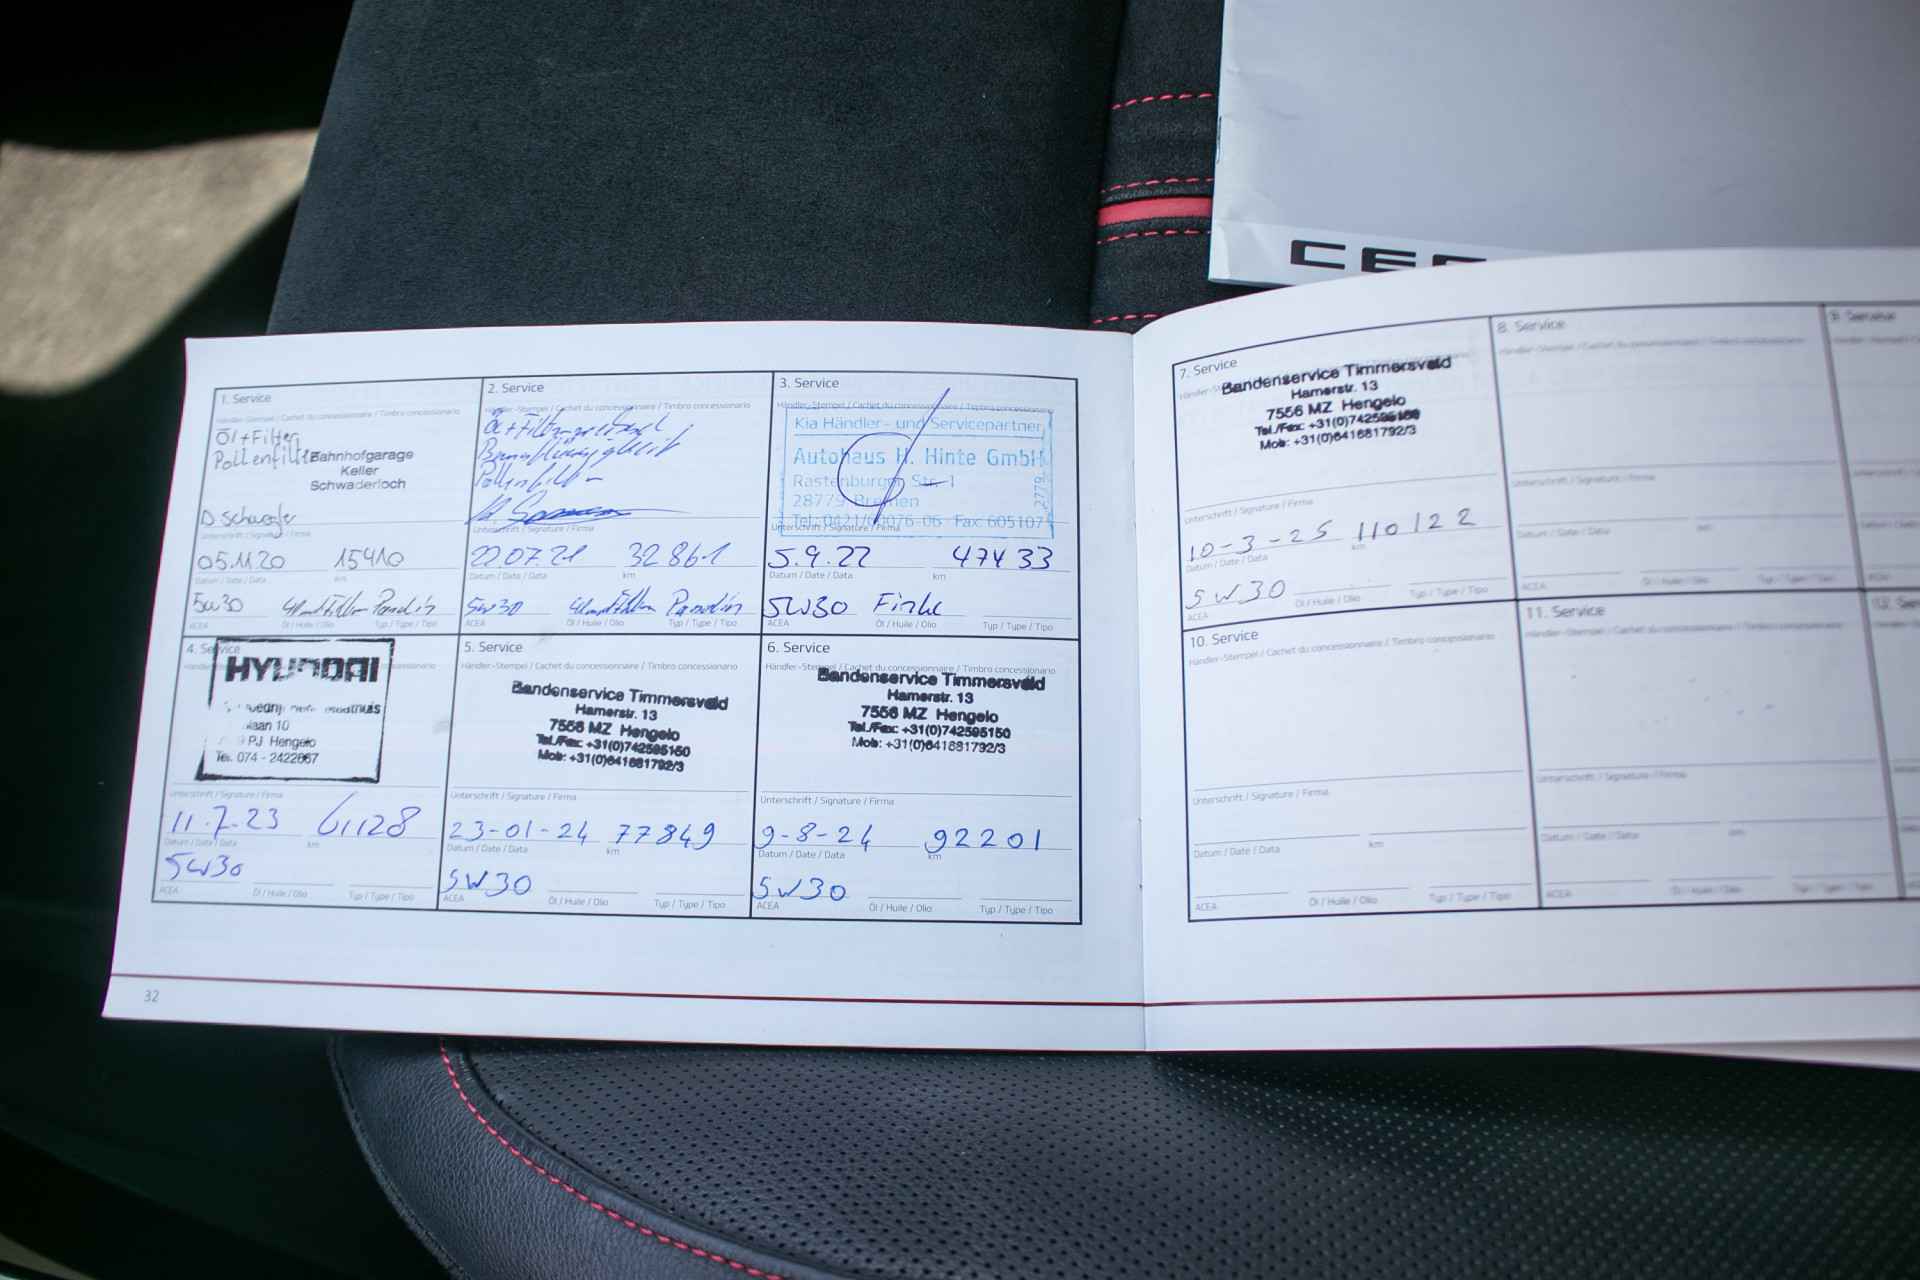 CEE
1. Service
Händler-Stempel / Cachet du concessionnaire / Timbro concessionario
Öl+Filter
Pollenfilter
Bahnhofgarage
Keller
Schwaderloch
Unterschrift / Signature / Firma
05.11.20 15410
Datum / Date / Data km
5W30
ACEA Öl / Huile / Olio Typ / Type / Tipo
2. Service
Händler-Stempel / Cachet du concessionnaire / Timbro concessionario
Pollenfilter
Unterschrift / Signature / Firma
22.07.21 32861
Datum / Date / Data km
5W30
ACEA Öl / Huile / Olio Typ / Type / Tipo
3. Service
Händler-Stempel / Cachet du concessionnaire / Timbro concessionario
Kia Händler- und Servicepartner
Autohaus H. Hinte GmbH
Rastenburger Str. 1
28779 Bremen
Tel.: 0421/69076-06 Fax: 605107
2779
Unterschrift / Signature / Firma
5.9.22 47433
Datum / Date / Data km
5W30
ACEA Öl / Huile / Olio Typ / Type / Tipo
4. Service
HYUNDAI
laan 10
PJ Hengelo
Tel. 074 - 2422667
Unterschrift / Signature / Firma
11-7-23 61128
Datum / Date / Data km
5W30
ACEA Öl / Huile / Olio Typ / Type / Tipo
5. Service
Händler-Stempel / Cachet du concessionnaire / Timbro concessionario
Bandenservice Timmersveld
Hamerstr. 13
7556 MZ Hengelo
Tel./Fax: +31(0)742595150
Mob: +31(0)641681792/3
Unterschrift / Signature / Firma
23-01-24 77849
Datum / Date / Data km
5W30
ACEA Öl / Huile / Olio Typ / Type / Tipo
6. Service
Händler-Stempel / Cachet du concessionnaire / Timbro concessionario
Bandenservice Timmersveld
Hamerstr. 13
7556 MZ Hengelo
Tel./Fax: +31(0)742595150
Mob: +31(0)641681792/3
Unterschrift / Signature / Firma
9-8-24 92201
Datum / Date / Data km
5W30
ACEA Öl / Huile / Olio Typ / Type / Tipo
32
7. Service
Bandenservice Timmersveld
Hamerstr. 13
7556 MZ Hengelo
Tel./Fax: +31(0)742595150
Mob: +31(0)641681792/3
Unterschrift / Signature / Firma
10-3-25 110122
Datum / Date / Data km
5W30
ACEA Öl / Huile / Olio Typ / Type / Tipo
8. Service
Händler-Stempel / Cachet du concessionnaire / Timbro concessionario
Unterschrift / Signature / Firma
Datum / Date / Data km
ACEA Öl / Huile / Olio Typ / Type / Tipo
9. Service
10. Service
Händler-Stempel / Cachet du concessionnaire / Timbro concessionario
Unterschrift / Signature / Firma
Datum / Date / Data km
ACEA Öl / Huile / Olio Typ / Type / Tipo
11. Service
Händler-Stempel / Cachet du concessionnaire / Timbro concessionario
Unterschrift / Signature / Firma
Datum / Date / Data km
ACEA Öl / Huile / Olio Typ / Type / Tipo
12. Service